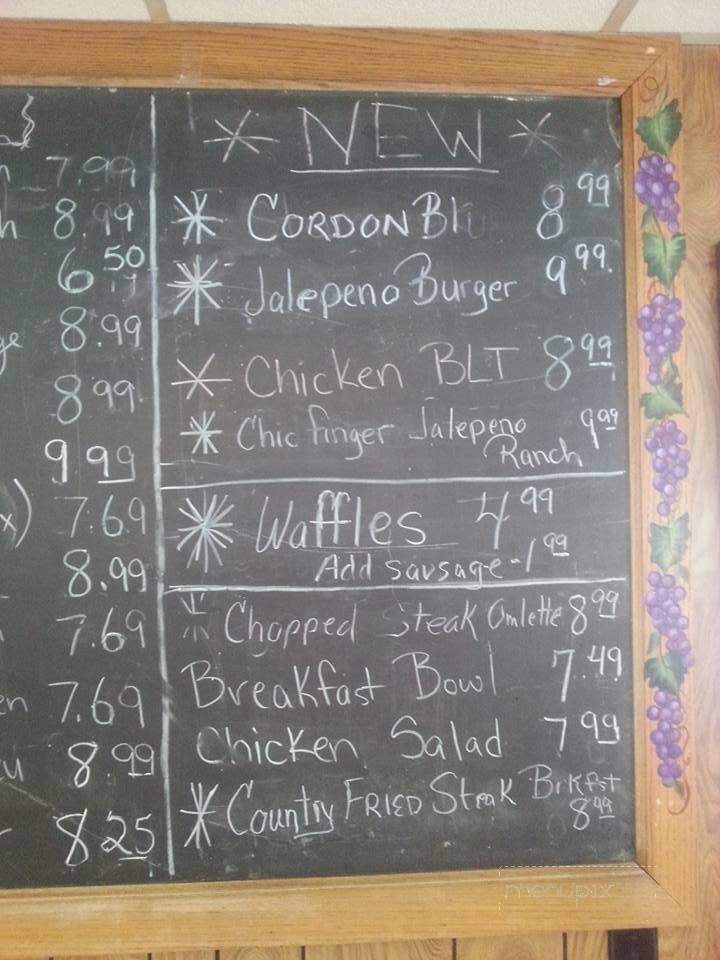 7.99
8.99
6 50
8.99
8 99
9 99
x) 7.69
8.99
7.69
en 7.69
8.99
8 25
* NEW *
* CORDON Blu 8 99
* Jalepeno Burger 9 99.
* Chicken BLT 8 99
* Chic finger Jalepeno 9 99
Ranch
* Waffles 4 99
Add sausage - 1 99
* Chopped Steak Omlette 8 99
Breakfast Bowl 7.49
Chicken Salad 7 99
* Country FRIED Steak Brkfst
8 99
menupix